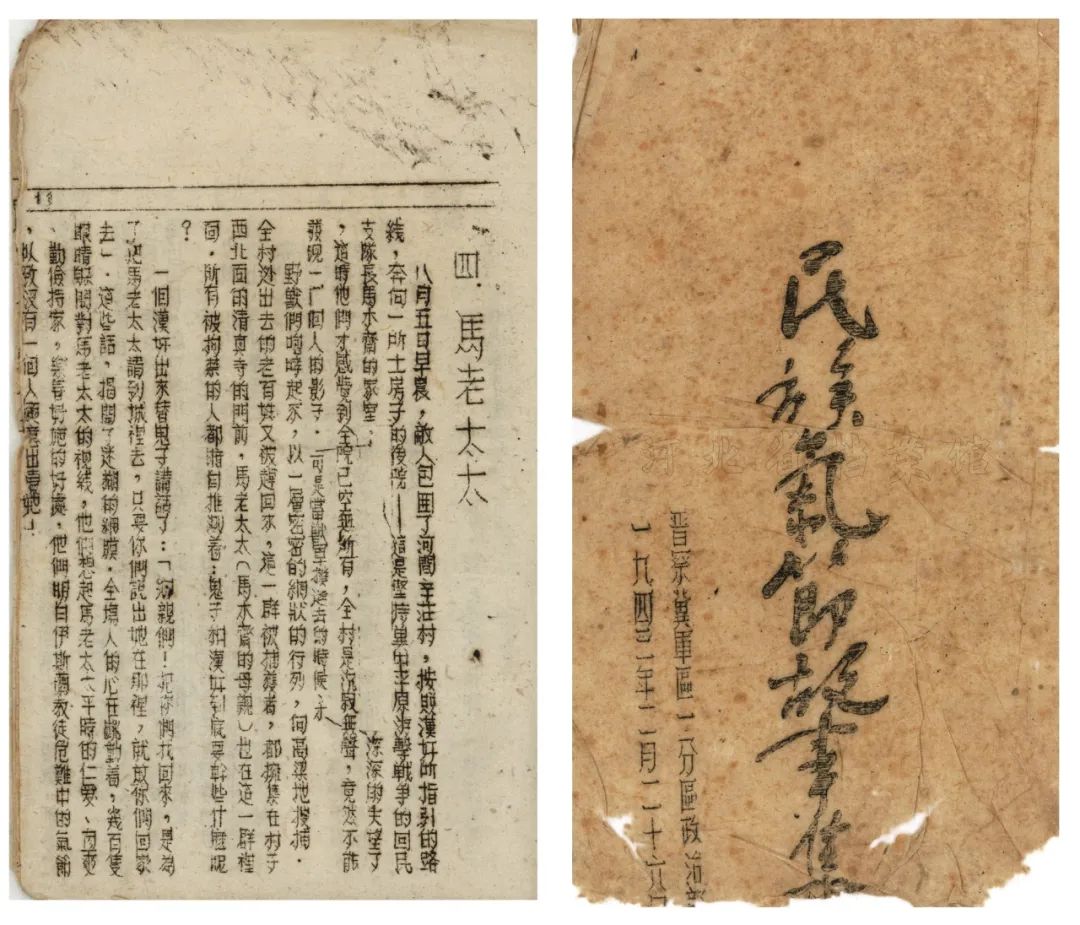 四．馬老太太
八月五日早晨，敵人包圍了河間辛莊村，按照漢奸所指引的路
綫，奔向一所土房子的後院——這是堅持冀中平原游擊戰爭的回民
支隊長馬本齋的家室；深深的失望了
，這時他們才感覺到全院已空無所有，全村是沉寂無聲，竟然不能
發現一個人的影子．可是當獸軍進去的時候、才
野獸們咆哮起來，以一層密密的網狀的行列，向高粱地搜捕．
全村逃出去的老百姓又被趕回來，這一群被捕獲者，都擁集在村子
西北面的清真寺的門前，馬老太太（馬本齋的母親）也在這一群裡
面．所有被拘禁的人都暗自推測着：鬼子和漢奸到底要幹些什麼呢
？
一個漢奸出來替鬼子講話了：「鄉親們！把你們找回來，是為
了把馬老太太請到城裡去，只要你們說出她在那裡，就放你們回家
去」．這些話，揭開了迷糊的網膜．全場人的心在跳動着，幾百隻
眼睛躲閃對馬老太太的視綫，他們想起馬老太太平時的仁愛、
、勤儉持家，樂善好施的好處，他們明白伊斯蘭教徒危難中的氣節
，以致沒有一個人願意出賣她！
民族氣節故事集
晉察冀軍區二分區政治部
一九四年二月二十六日